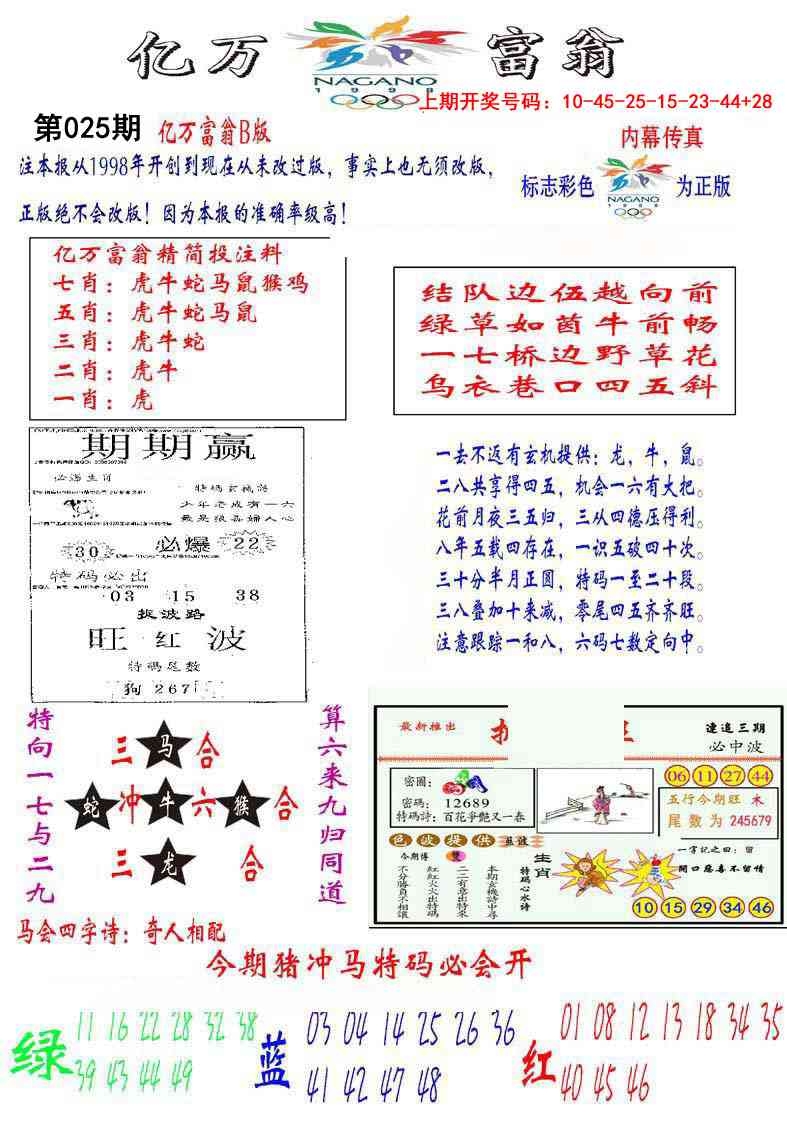 亿万富翁
NAGANO
1998
上期开奖号码：10-45-25-15-23-44+28
第025期 亿万富翁B版
内幕传真
注本报从1998年开创到现在从未改过版，事实上也无须改版，
正版绝不会改版！因为本报的准确率级高！
标志彩色 NAGANO 1998 为正版
亿万富翁精简投注料
七肖：虎牛蛇马鼠猴鸡
五肖：虎牛蛇马鼠
三肖：虎牛蛇
二肖：虎牛
一肖：虎
结队边伍越向前
绿草如茵牛前畅
一七桥边野草花
乌衣巷口四五斜
期期赢
必杀生肖
特码玄机诗
少年老成有一六
最是狼毒妇人心
30 必爆 22
特码必出
03 15 38
捉波路
旺红波
特码尾数
狗267
一去不返有玄机提供：龙，牛，鼠。
二八共享得四五，机会一六有大把。
花前月夜三五归，三从四德压得利。
八年五载四存在，一识五破四十次。
三十分半月正圆，特码一至二十段。
三八叠加十来减，零尾四五齐齐旺。
注意跟踪一和八，六码七数定向中。
特向一七与二九
三马合
蛇冲牛六猴合
三龙 合
算六来九归同道
最新推出
速追三期
必中波
密圈：
密码：12689
特码詩：百花爭艷又一春
06 11 27 44
五行今期旺 木
尾数为 245679
色波提供 蓝波
今期博 雙
不分勝負不相讓
紅紅火火出特碼
二三有意出特来
本期玄機詩中尋
特码心水诗
生肖
一字記之曰：留
開口惡毒不留情
10 15 29 34 46
马会四字诗：奇人相配
今期猪冲马特码必会开
绿 11 16 22 28 32 38
39 43 44 49
蓝 03 04 14 25 26 36
41 42 47 48
红 01 08 12 13 18 34 35
40 45 46